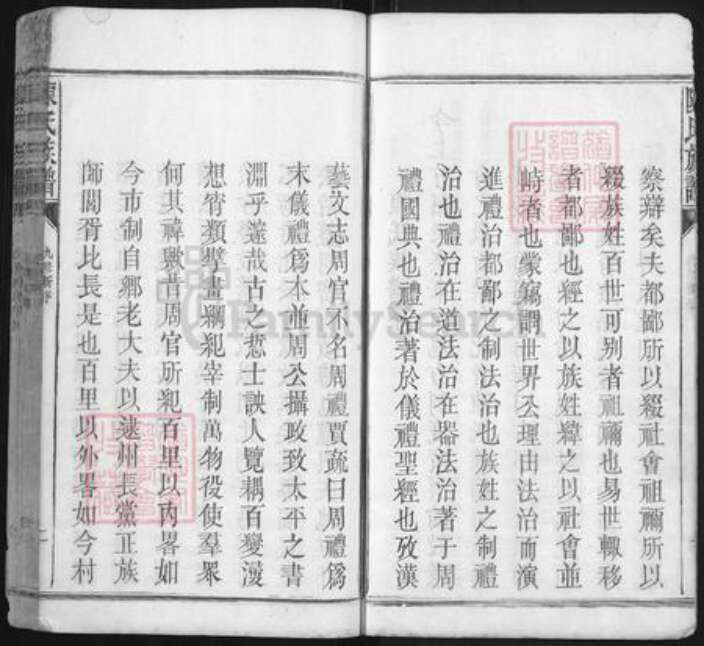 察辯矣夫都鄙所以綴社會祖禰所以
綴族姓百世可别者祖禰也易世輙移
者都鄙也經之以族姓緯之以社會並
峙者也蒙竊謂世界公理由法治而演
進禮治都鄙之制法治也族姓之制禮
治也禮治在道法治在器法治著于周
禮國典也禮治著於儀禮聖經也攷漢
藝文志周官不名周禮賈疏曰周禮為
末儀禮為本並周公攝政致太平之書
淵乎邃哉古之悊士諛人覽耦百變漫
想宵類擘畫綱紀宰制萬物役使羣衆
何其禕歟昔周官所紀百里以內畧如
今市制自鄉老大夫以逮州長黨正族
師閭胥比長是也百里以外畧如今村
陳氏族譜
陳氏族譜
FamilySearch